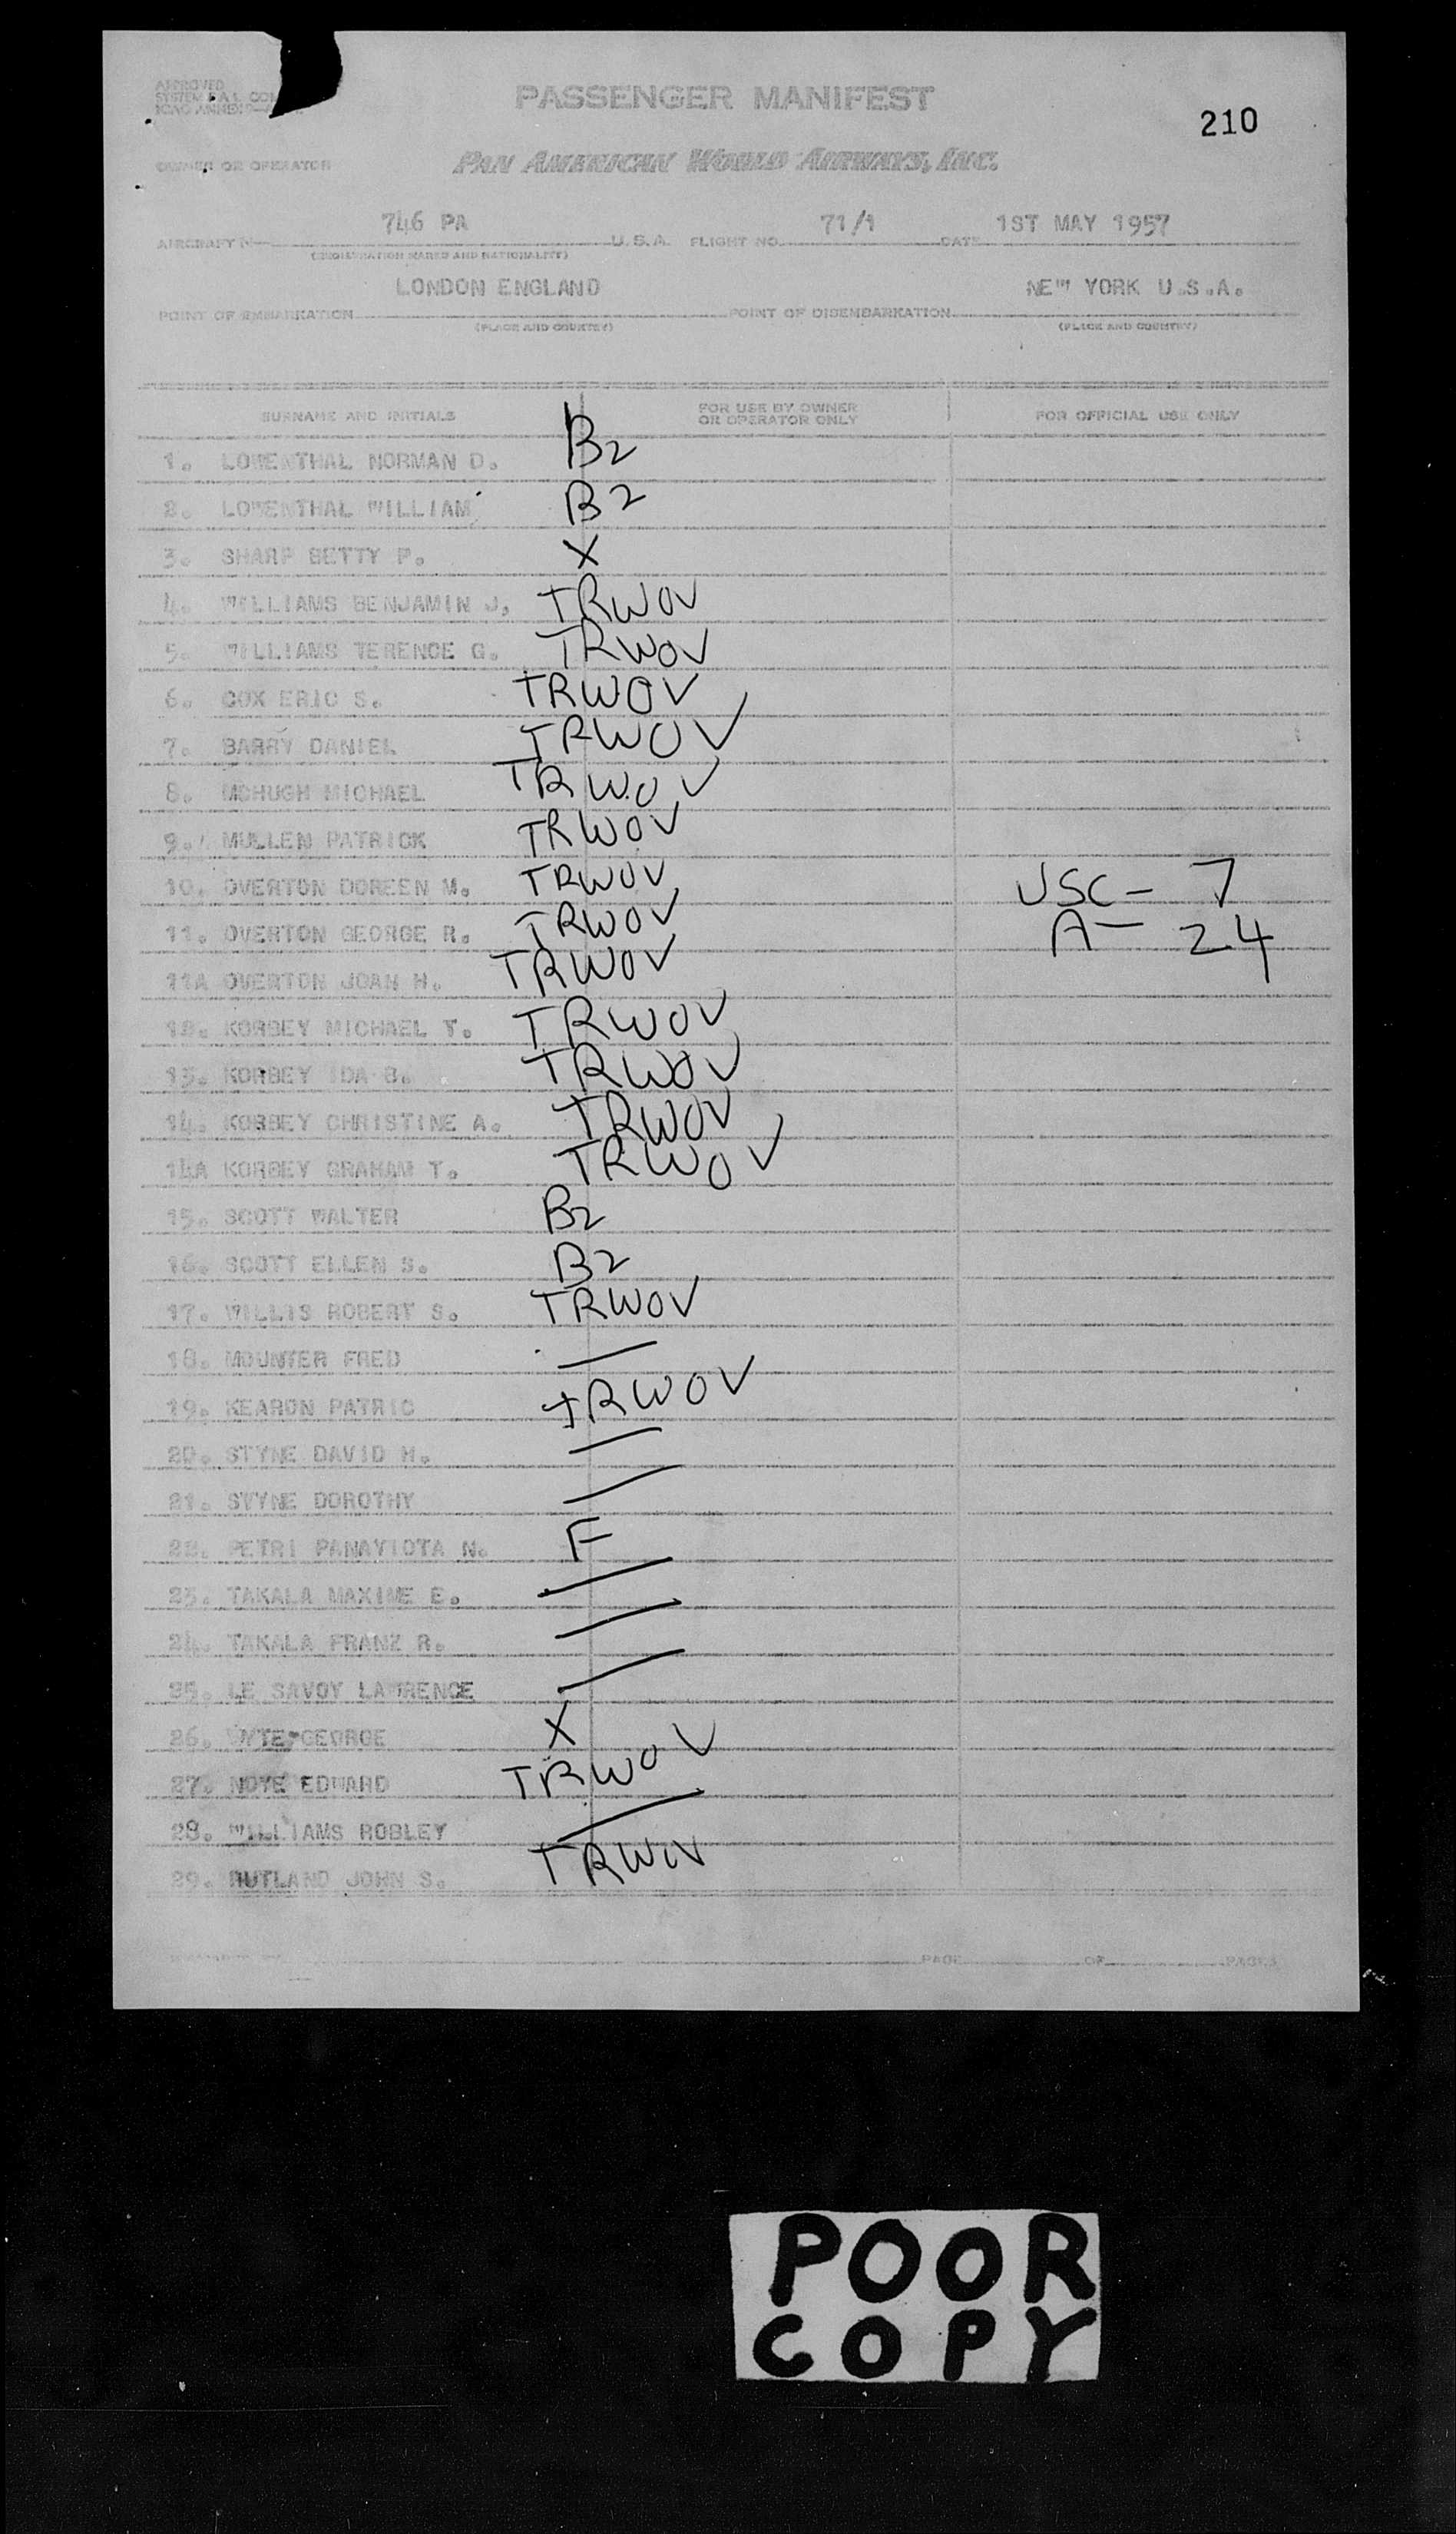 APPROVED
PASSENGER MANIFEST
210
OWNER OR OPERATOR PAN AMERICAN WORLD AIRWAYS, INC.
746 PA 71/1 1ST MAY 1957
AIRCRAFT U.S.A. FLIGHT NO. DATE
(REGISTRATION MARKS AND NATIONALITY)
LONDON ENGLAND NEW YORK U.S.A.
POINT OF EMBARKATION POINT OF DISEMBARKATION
(PLACE AND COUNTRY) (PLACE AND COUNTRY)
SURNAME AND INITIALS FOR USE BY OWNER OR OPERATOR ONLY FOR OFFICIAL USE ONLY
1. LOWENTHAL NORMAN D. B2
2. LOWENTHAL WILLIAM B2
3. SHARP BETTY P. X
4. WILLIAMS BENJAMIN J. TRWOV
5. WILLIAMS TERENCE G. TRWOV
6. COX ERIC S. TRWOV
7. BARRY DANIEL TRWOV
8. MCHUGH MICHAEL TRWOV
9. MULLEN PATRICK TRWOV
10. OVERTON DOREEN M. TRWOV USC - 7
11. OVERTON GEORGE R. TRWOV A - 24
11A OVERTON JOAN H. TRWOV
12. KORBEY MICHAEL T. TRWOV
13. KORBEY IDA B. TRWOV
14. KORBEY CHRISTINE A. TRWOV
14A KORBEY GRAHAM T. TRWOV
15. SCOTT WALTER B2
16. SCOTT ELLEN S. B2
17. WILLIS ROBERT S. TRWOV
18. MOUNTER FRED —
19. KEARON PATRIC TRWOV
20. STYNE DAVID H. —
21. STYNE DOROTHY —
22. PETRI PANAYIOTA N. F
23. TAKALA MAXIME E. —
24. TAKALA FRANZ R. —
25. LE SAVOY LAWRENCE —
26. GEORGE X
27. NOYE EDWARD TRWOV
28. WILLIAMS ROBLEY —
29. RUTLAND JOHN S. TRWOV
PAGE OF PAGES
POOR
COPY